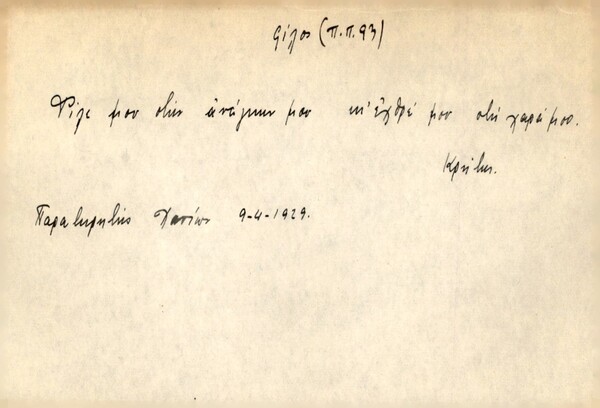 φίλος (Π.π.93)
Φίλε μου στὴν ἀνάγκην μου κι' ἐχθρέ μου στὴ χαρά μου.
Κρήτη.
Παρατηρητὴς Χανίων 9-4-1929.